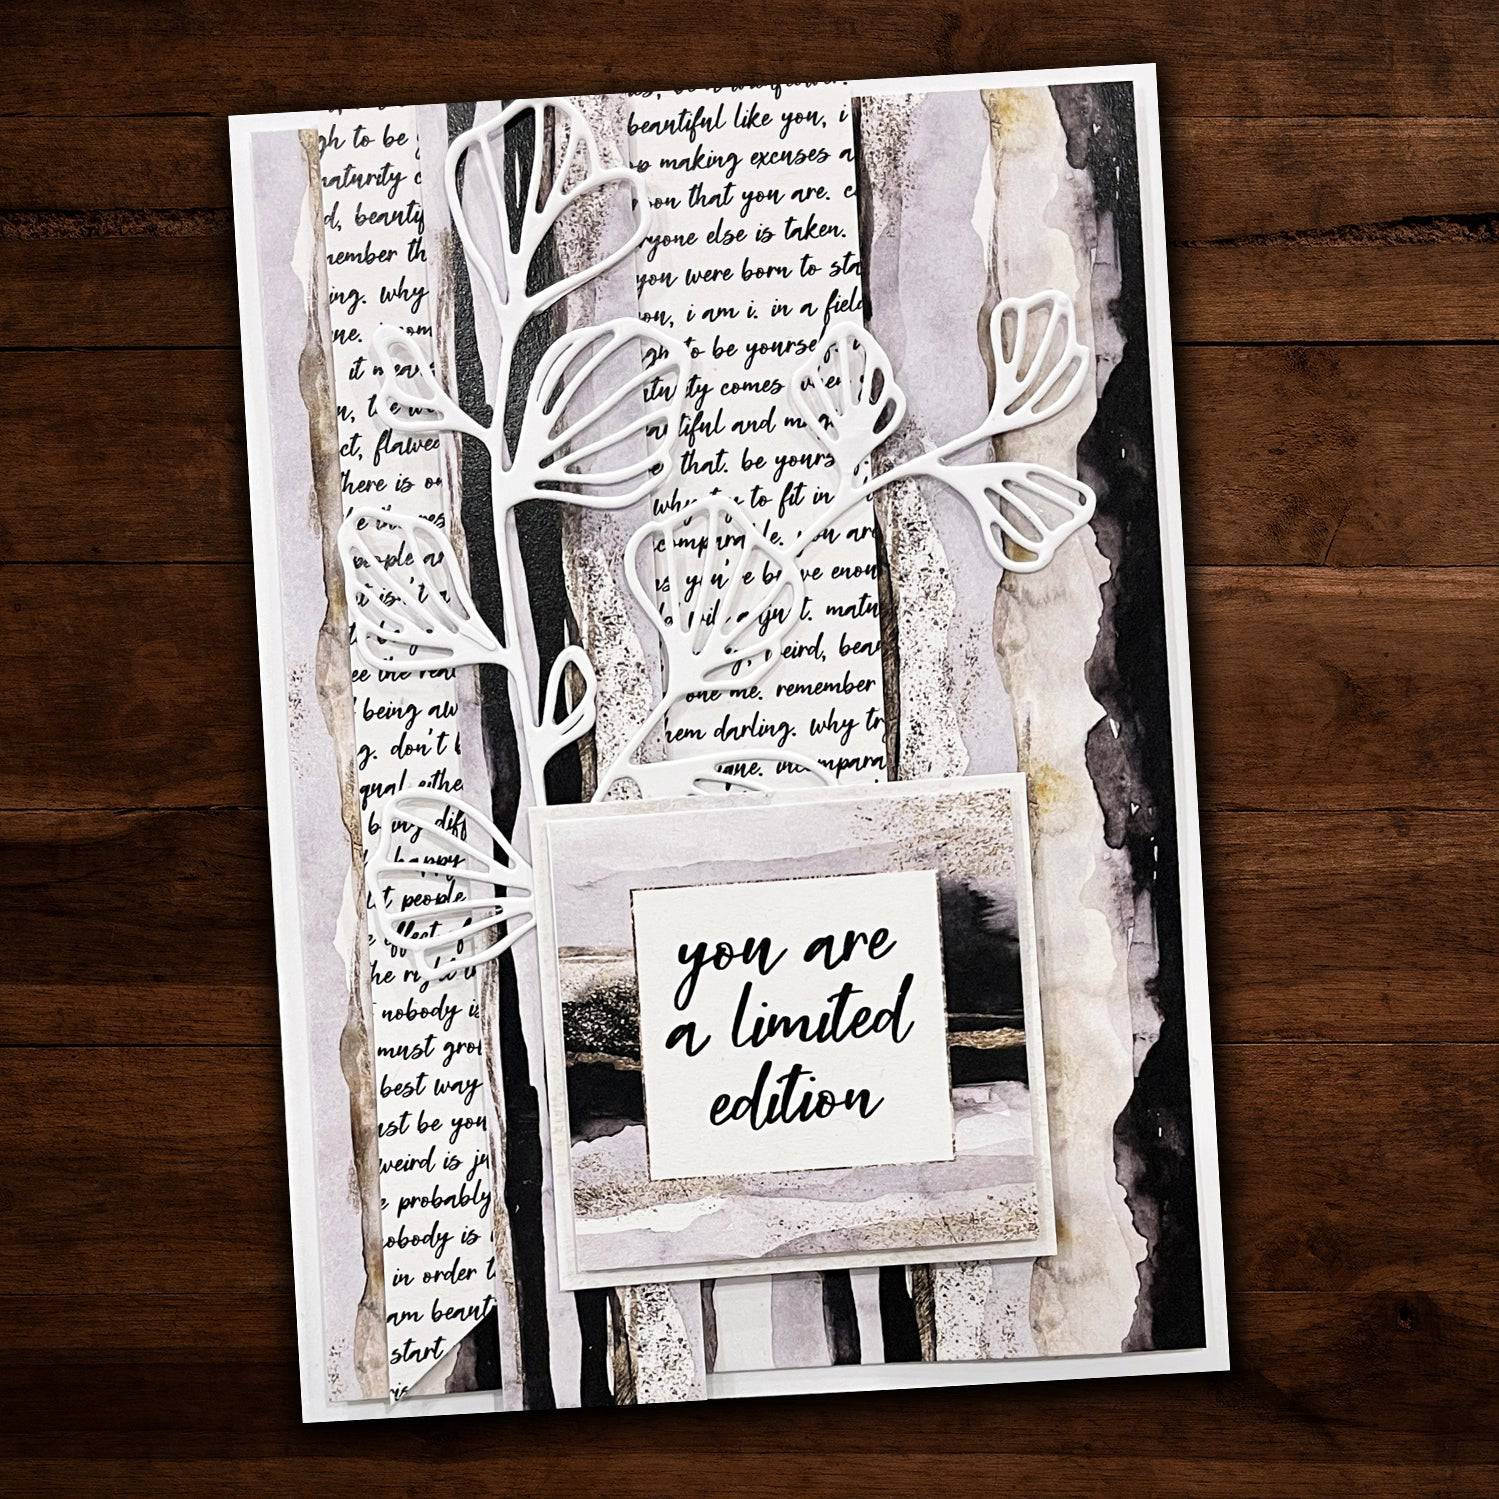 gh to be
maturity c
d, beautif
member th
ing. why
ne.
it means
ct, flawed
there is on
people ar
t isn't a
see the real
being aw
g. don't b
qual eithe
being diff
happy
t people
effect of
the right
nobody is
must grow
best way
just be you
weird is ju
e probably
nobody is
in order t
am beaut
start
beautiful like you, i
making excuses a
that you are.
everyone else is taken.
you were born to sta
you, i am i. in a field
to be yourself. i
maturity comes when
beautiful and
that. be yours
why try to fit in
comparable. you are
as you're brave enou
adjust. matu
weird, beau
one me. remember
them darling. why try
incompara
you are
a limited
edition